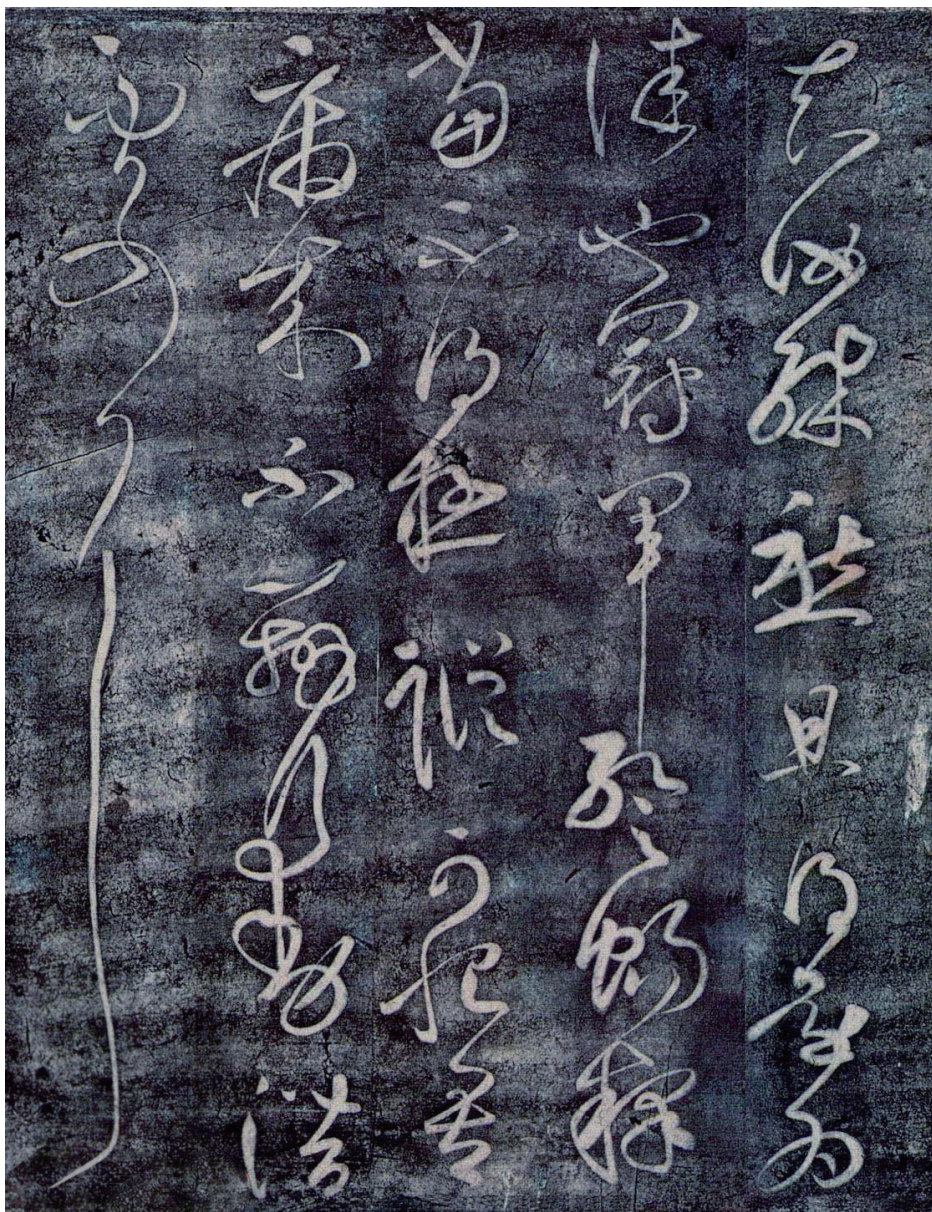 知汝殊愁且得還為
佳也冠軍暫暢釋
當不得極蹤可恨吾
病來不辦行動潛
不可耳